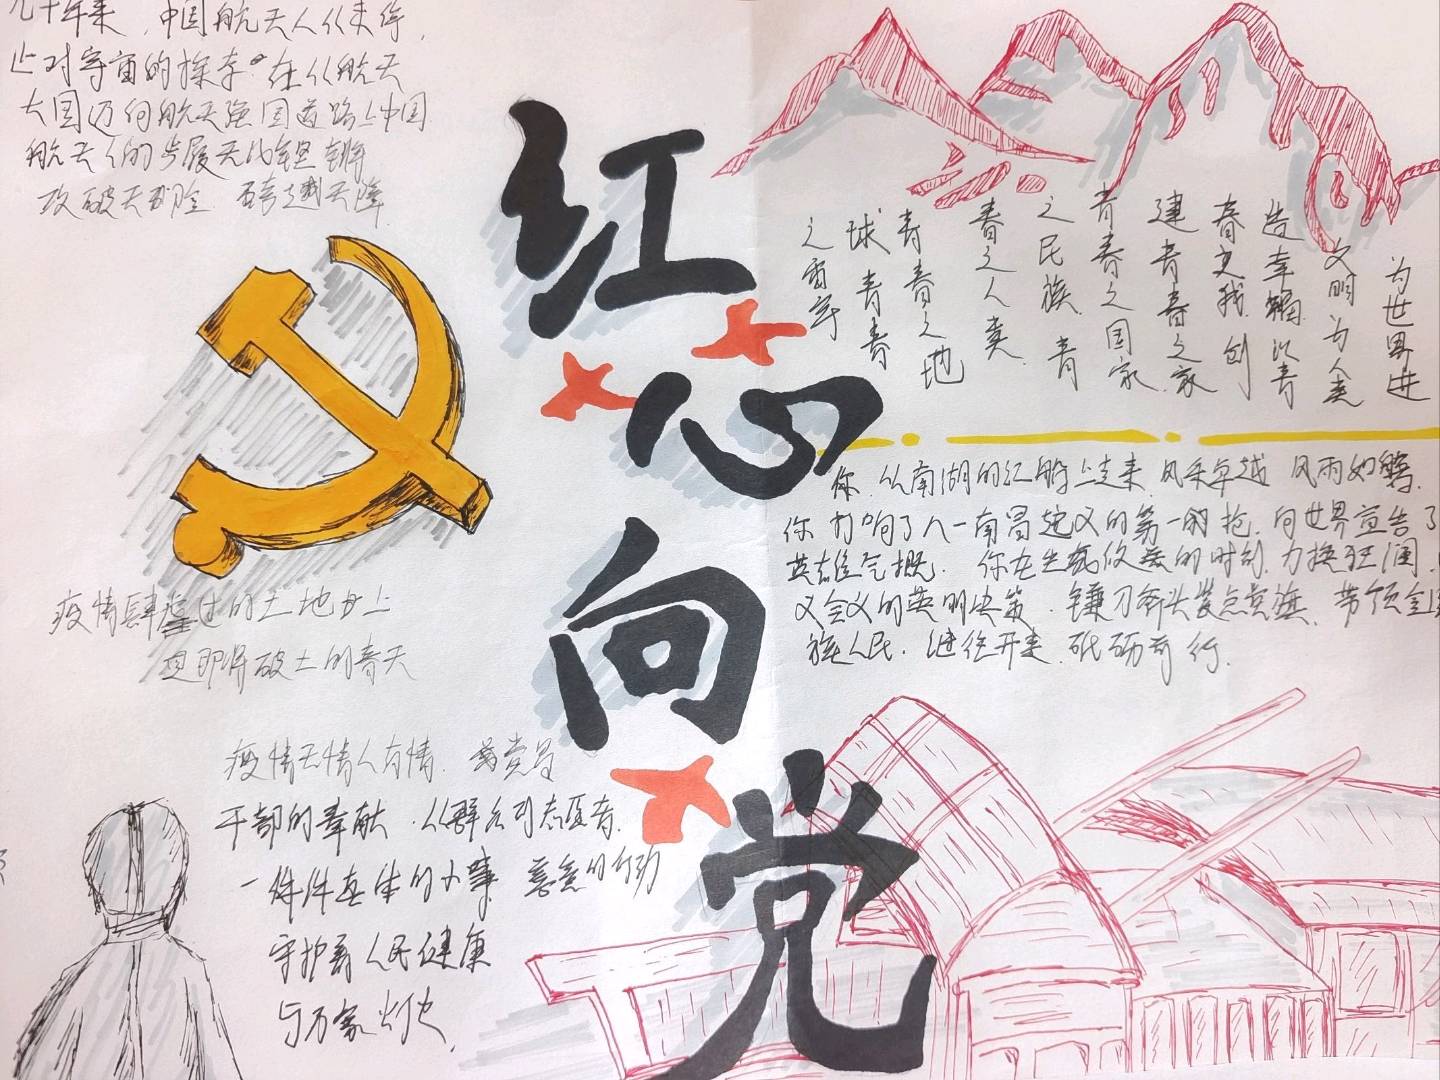 九十年来，中国航天人从未停
止对宇宙的探索。在从航天
大国迈向航天强国道路上中国
航天人的步履无比铿锵
攻破天险 跨越天障
红心向党
为世界进
文明为人类
造幸福以青
春之我创
建青春之家
青春之国家
之民族青
春之人类
青春之地
球青春
之宇宙
你从南湖的红船上走来，风采卓越 风雨如磐
你打响了八一南昌起义的第一声枪，向世界宣告了
英雄气概. 你在生死攸关的时刻，力挽狂澜
义会议的英明决策，镰刀斧头发点党旗，带领全
族人民，继往开来，砥砺前行.
疫情肆虐过的土地上
是即将破土的春天
疫情无情人有情. 党员
干部的奉献，从群众到志愿者.
一件件具体的小事 善意的行动
守护着人民健康
与万家灯火.